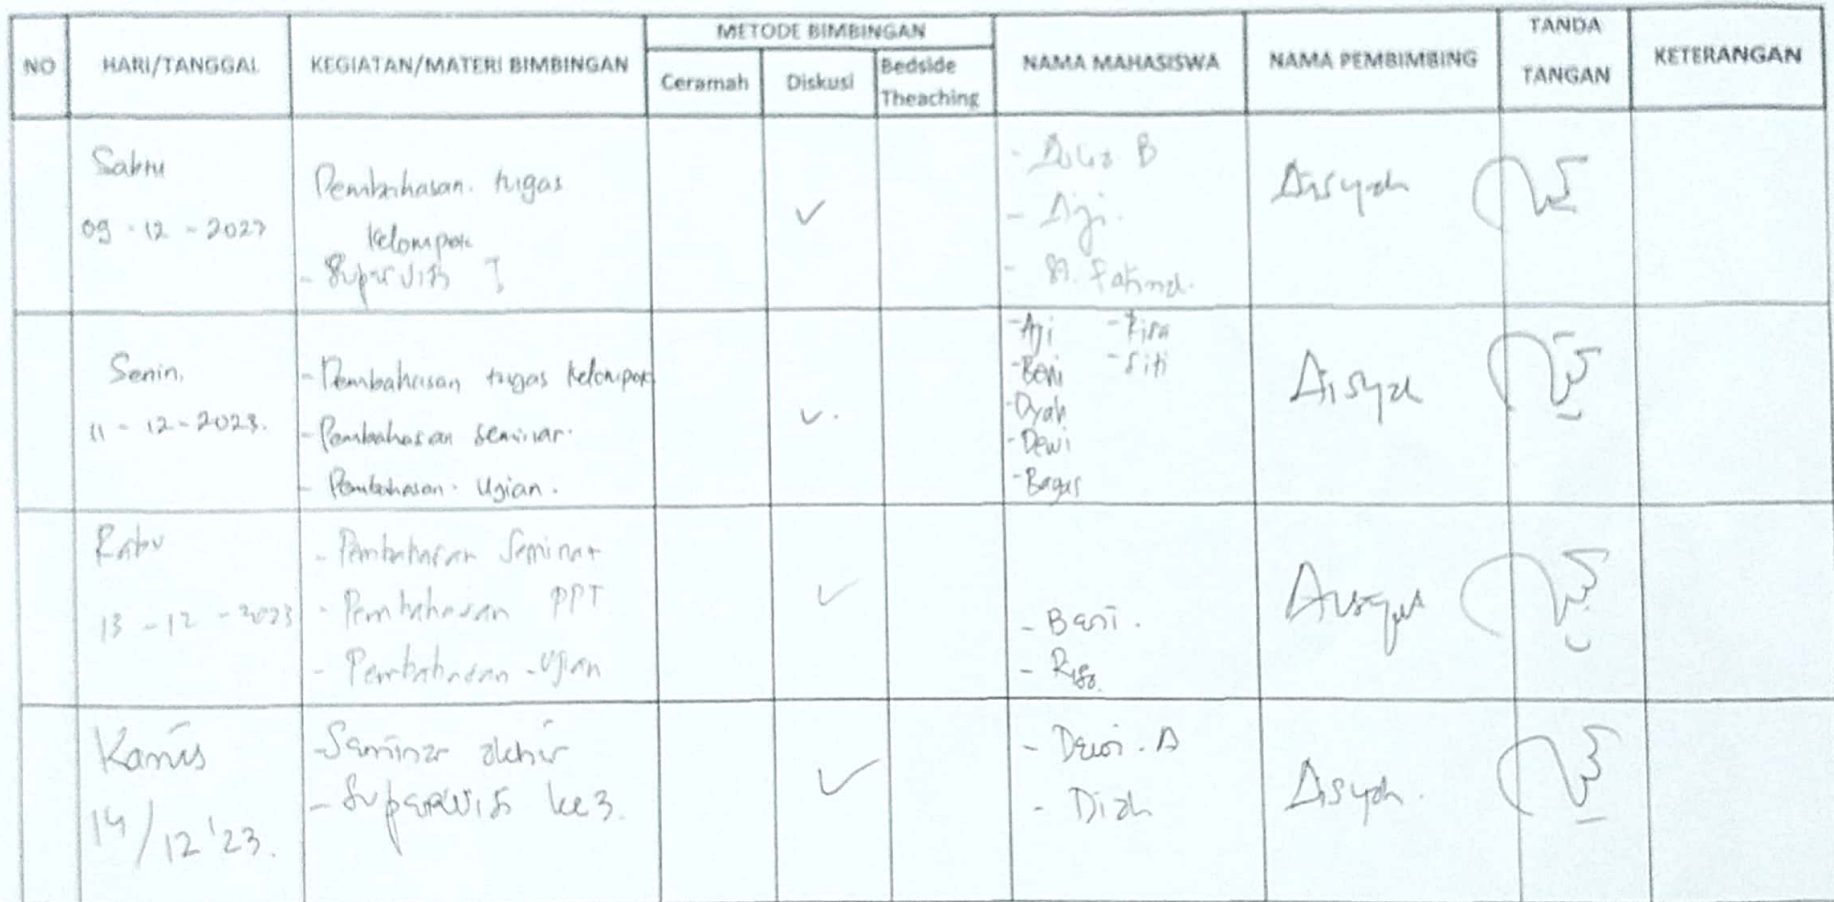 NO
HARI/TANGGAL
KEGIATAN/MATERI BIMBINGAN
METODE BIMBINGAN
Ceramah
Diskusi
Bedside
Theaching
NAMA MAHASISWA
NAMA PEMBIMBING
TANDA
TANGAN
KETERANGAN
Sabtu
09-12-2023
Pembahasan tugas
kelompok
- Supervisi I
✓
B
- Aji.
- Fatma.
Aisyah
Senin,
11-12-2023.
- Pembahasan tugas kelompok
- Pembahasan seminar.
- Pembahasan. Ujian.
✓.
- Aji
- Beni
- Dyah
- Dewi
- Bagus
- Siti
Aisyah
Rabu
13-12-2023
- Pembahasan Seminar
- Pembahasan PPT
- Pembahasan - Ujian
✓
- Beni.
Aisyah
Kamis
14/12'23.
- Seminar akhir
- Supervisi ke 3.
✓
- Dewi. A
- Diah
Aisyah.